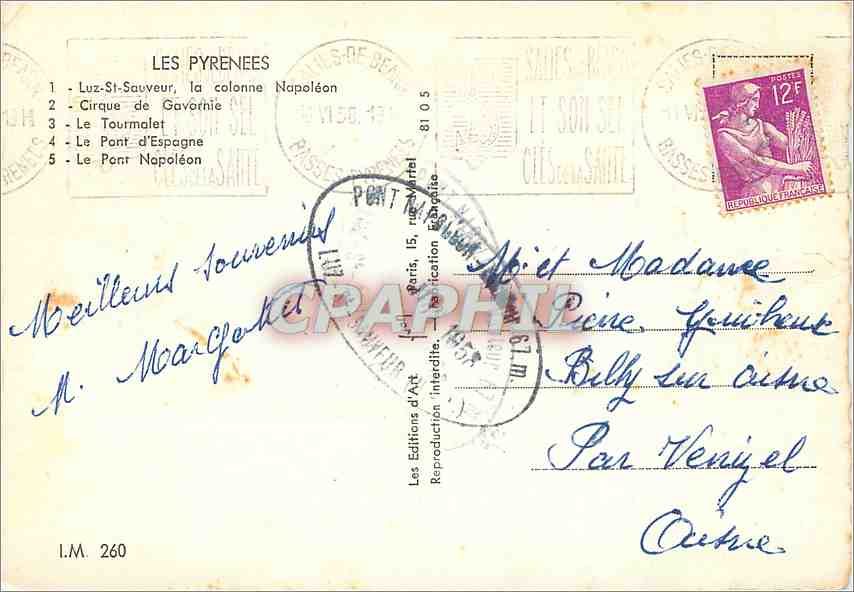 LES PYRENEES
1 - Luz-St-Sauveur, la colonne Napoléon
2 - Cirque de Gavarnie
3 - Le Tourmalet
4 - Le Pont d'Espagne
5 - Le Pont Napoléon
SALIES-DE-BEARN
VI 58
BASSES-PYRENEES
ET SON SEL
CLÉS DE LA SANTÉ
POSTES
12F
REPUBLIQUE FRANÇAISE
8105
Les Editions d'Art
Paris, 15, rue Martel
Reproduction interdite. — Fabrication Française
PONT NAPOLEON
67 m.
1958
LUZ
SAUVEUR
CPARPHIL
Meilleurs souvenirs
M. Margotet
M. et Madame
Pierre
Billy sur Aisne
Par Venizel
Aisne
I.M. 260